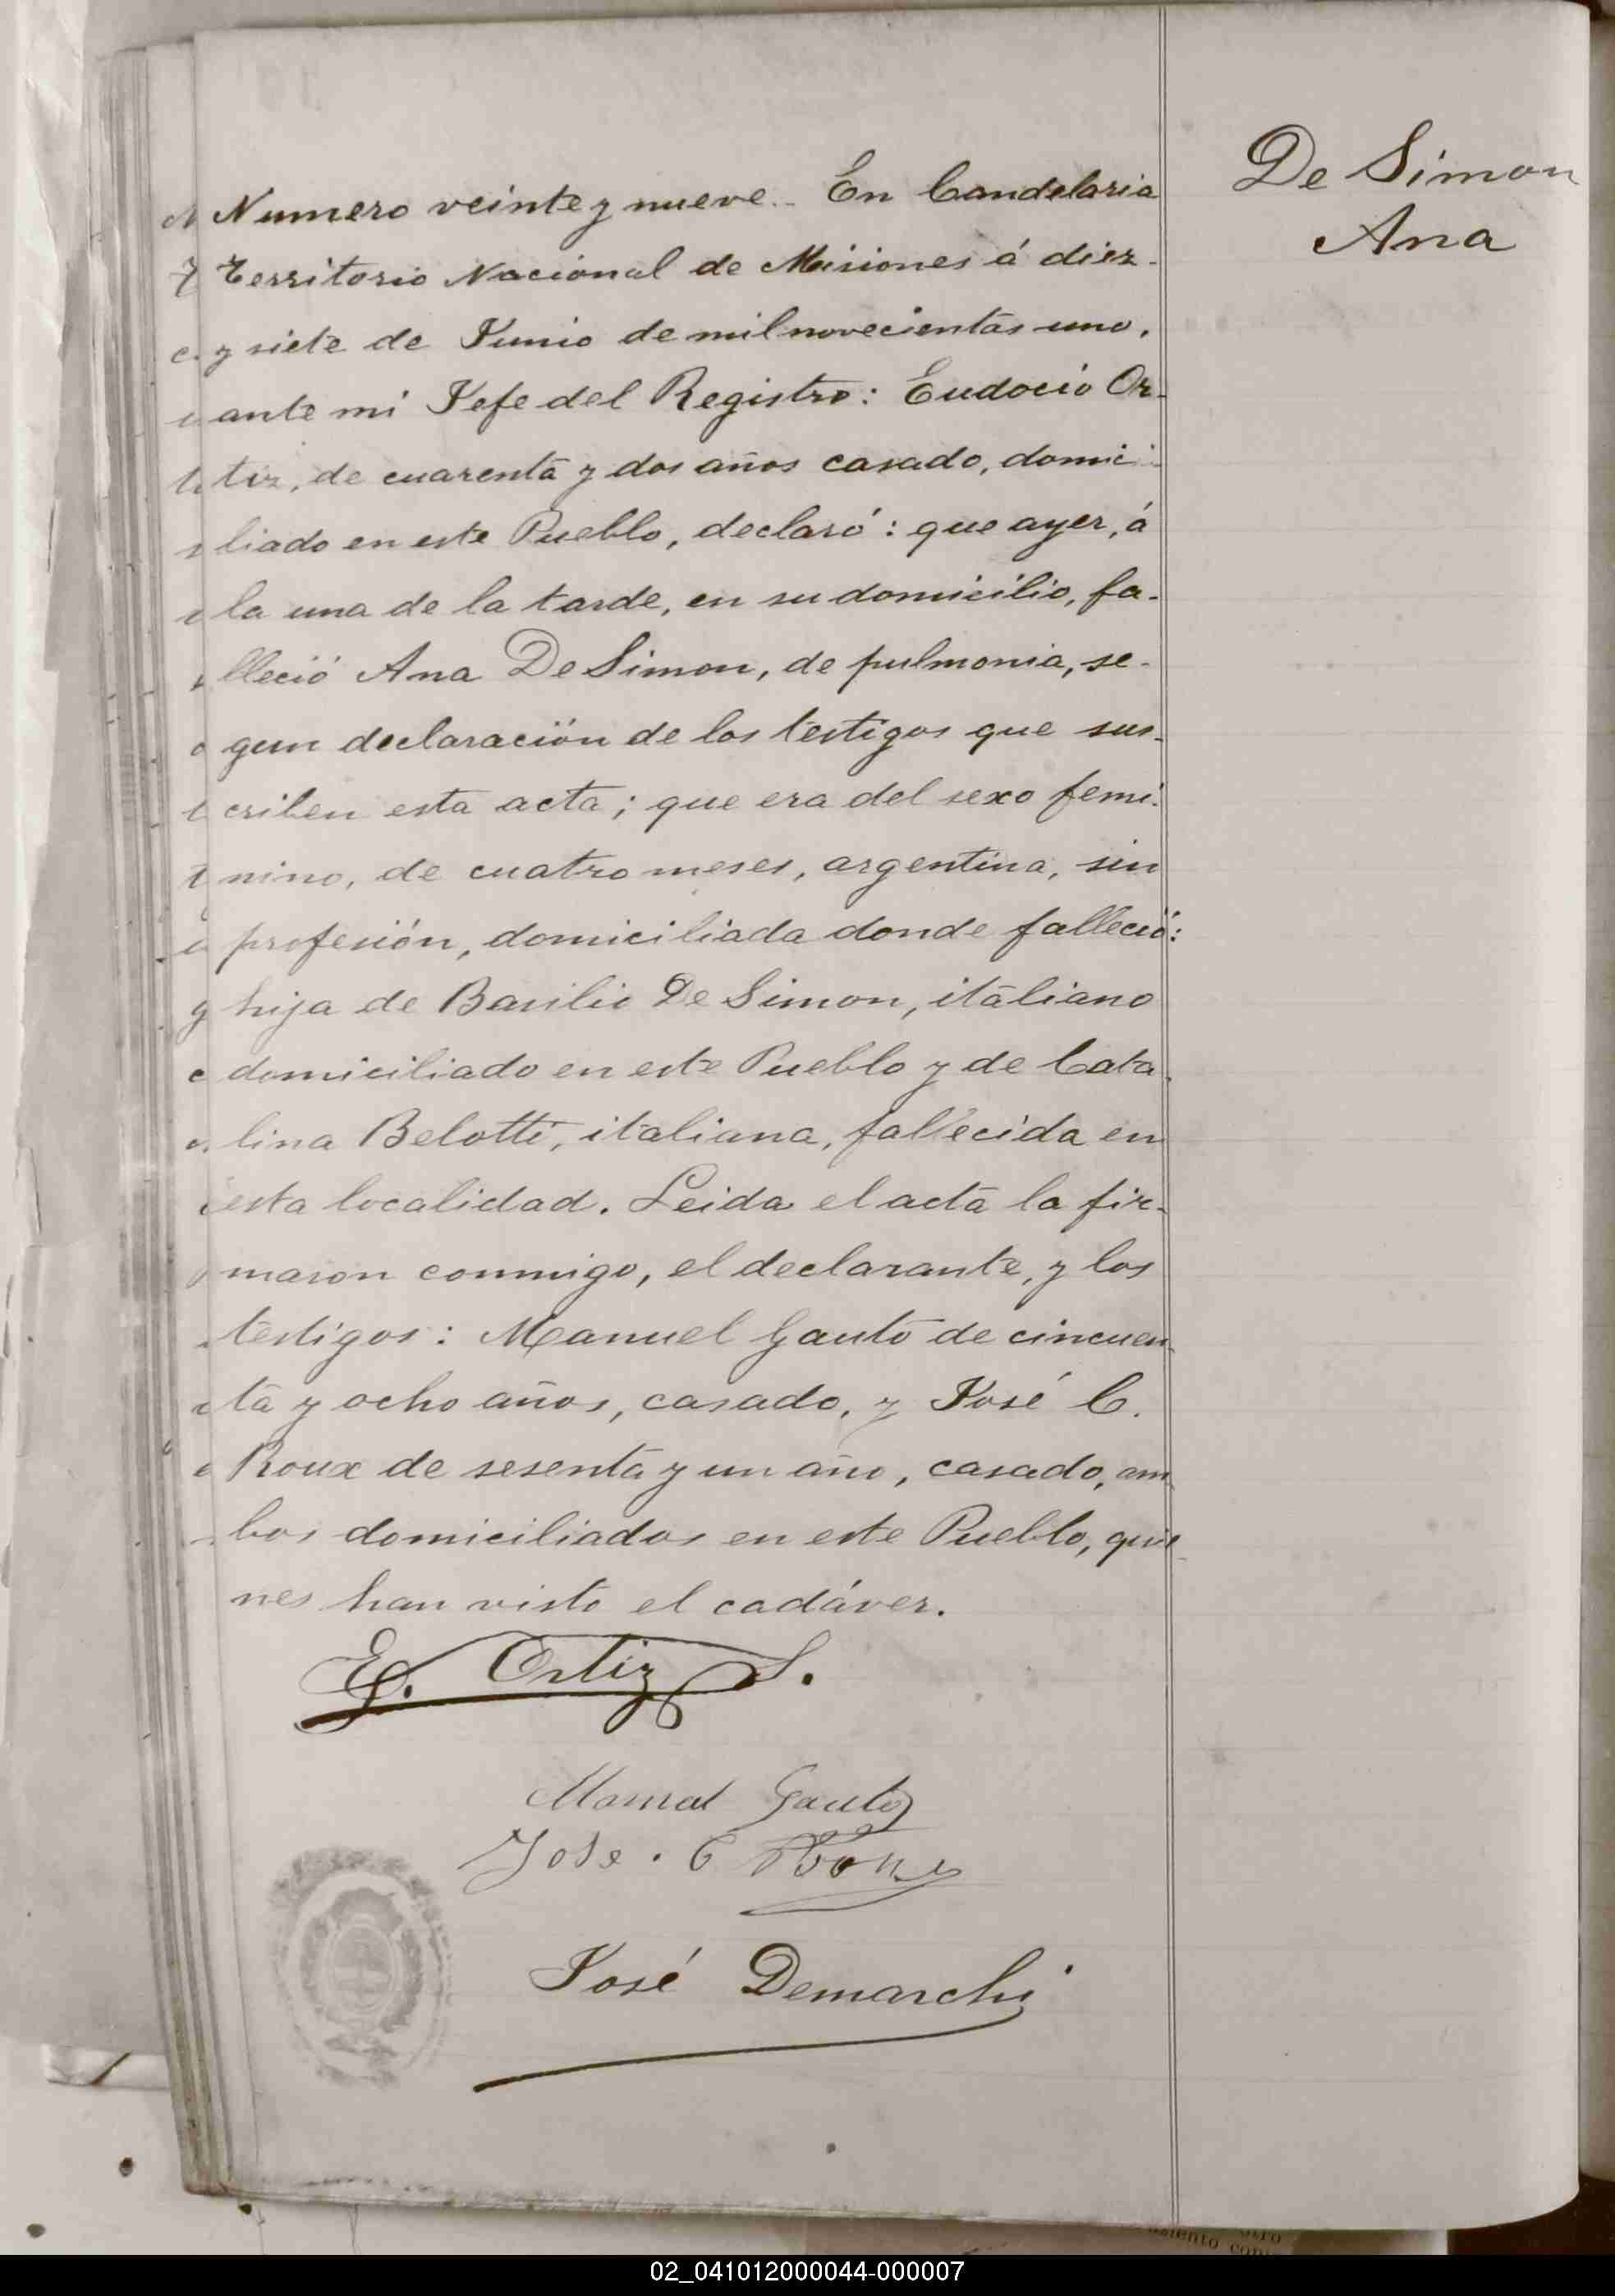 De Simon
Ana
Numero veinte y nueve.- En Candelaria
Territorio Nacional de Misiones á diez-
y siete de Junio de mil novecientos uno,
ante mi Jefe del Registro: Eudocio Or-
tiz, de cuarenta y dos años casado, domici-
liado en este Pueblo, declaró: que ayer, á
la una de la tarde, en su domicilio, fa-
lleció Ana De Simon, de pulmonia, se-
gun declaración de los testigos que sus-
criben esta acta; que era del sexo femi-
nino, de cuatro meses, argentina, sin
profesión, domiciliada donde falleció:
hija de Basilio De Simon, italiano
domiciliado en este Pueblo y de Cata-
lina Belotti, italiana, fallecida en
esta localidad. Leida el acta la fir-
maron conmigo, el declarante, y los
testigos: Manuel Gauto de cincuen-
ta y ocho años, casado, y José C.
Roux de sesenta y un año, casado, am-
bos domiciliados en este Pueblo, quie-
nes han visto el cadáver.
E. Ortiz S.
Manuel Gauto
Jose. C Roux
José Demarchi
02_041012000044-000007